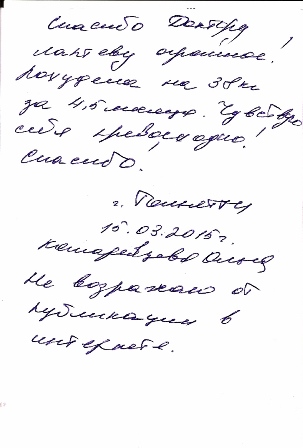 Спасибо Доктору
Лаптеву огромное!
Похудела на 38кг
за 4,5 месяца. Чувствую
себя превосходно!
Спасибо.
г.
15.03.2015г.
Ольга
Не возражаю от
публикации в
интернете.